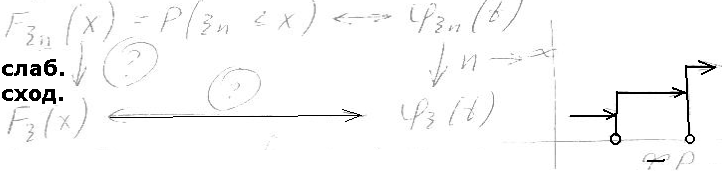 F_{ξn}(x) = P(ξn < x) ⟷ φ_{ξn}(t)
слаб. ↓ (?) ↓ n → ∞
сход. (?)
F_ξ(x) ⟷ φ_ξ(t)